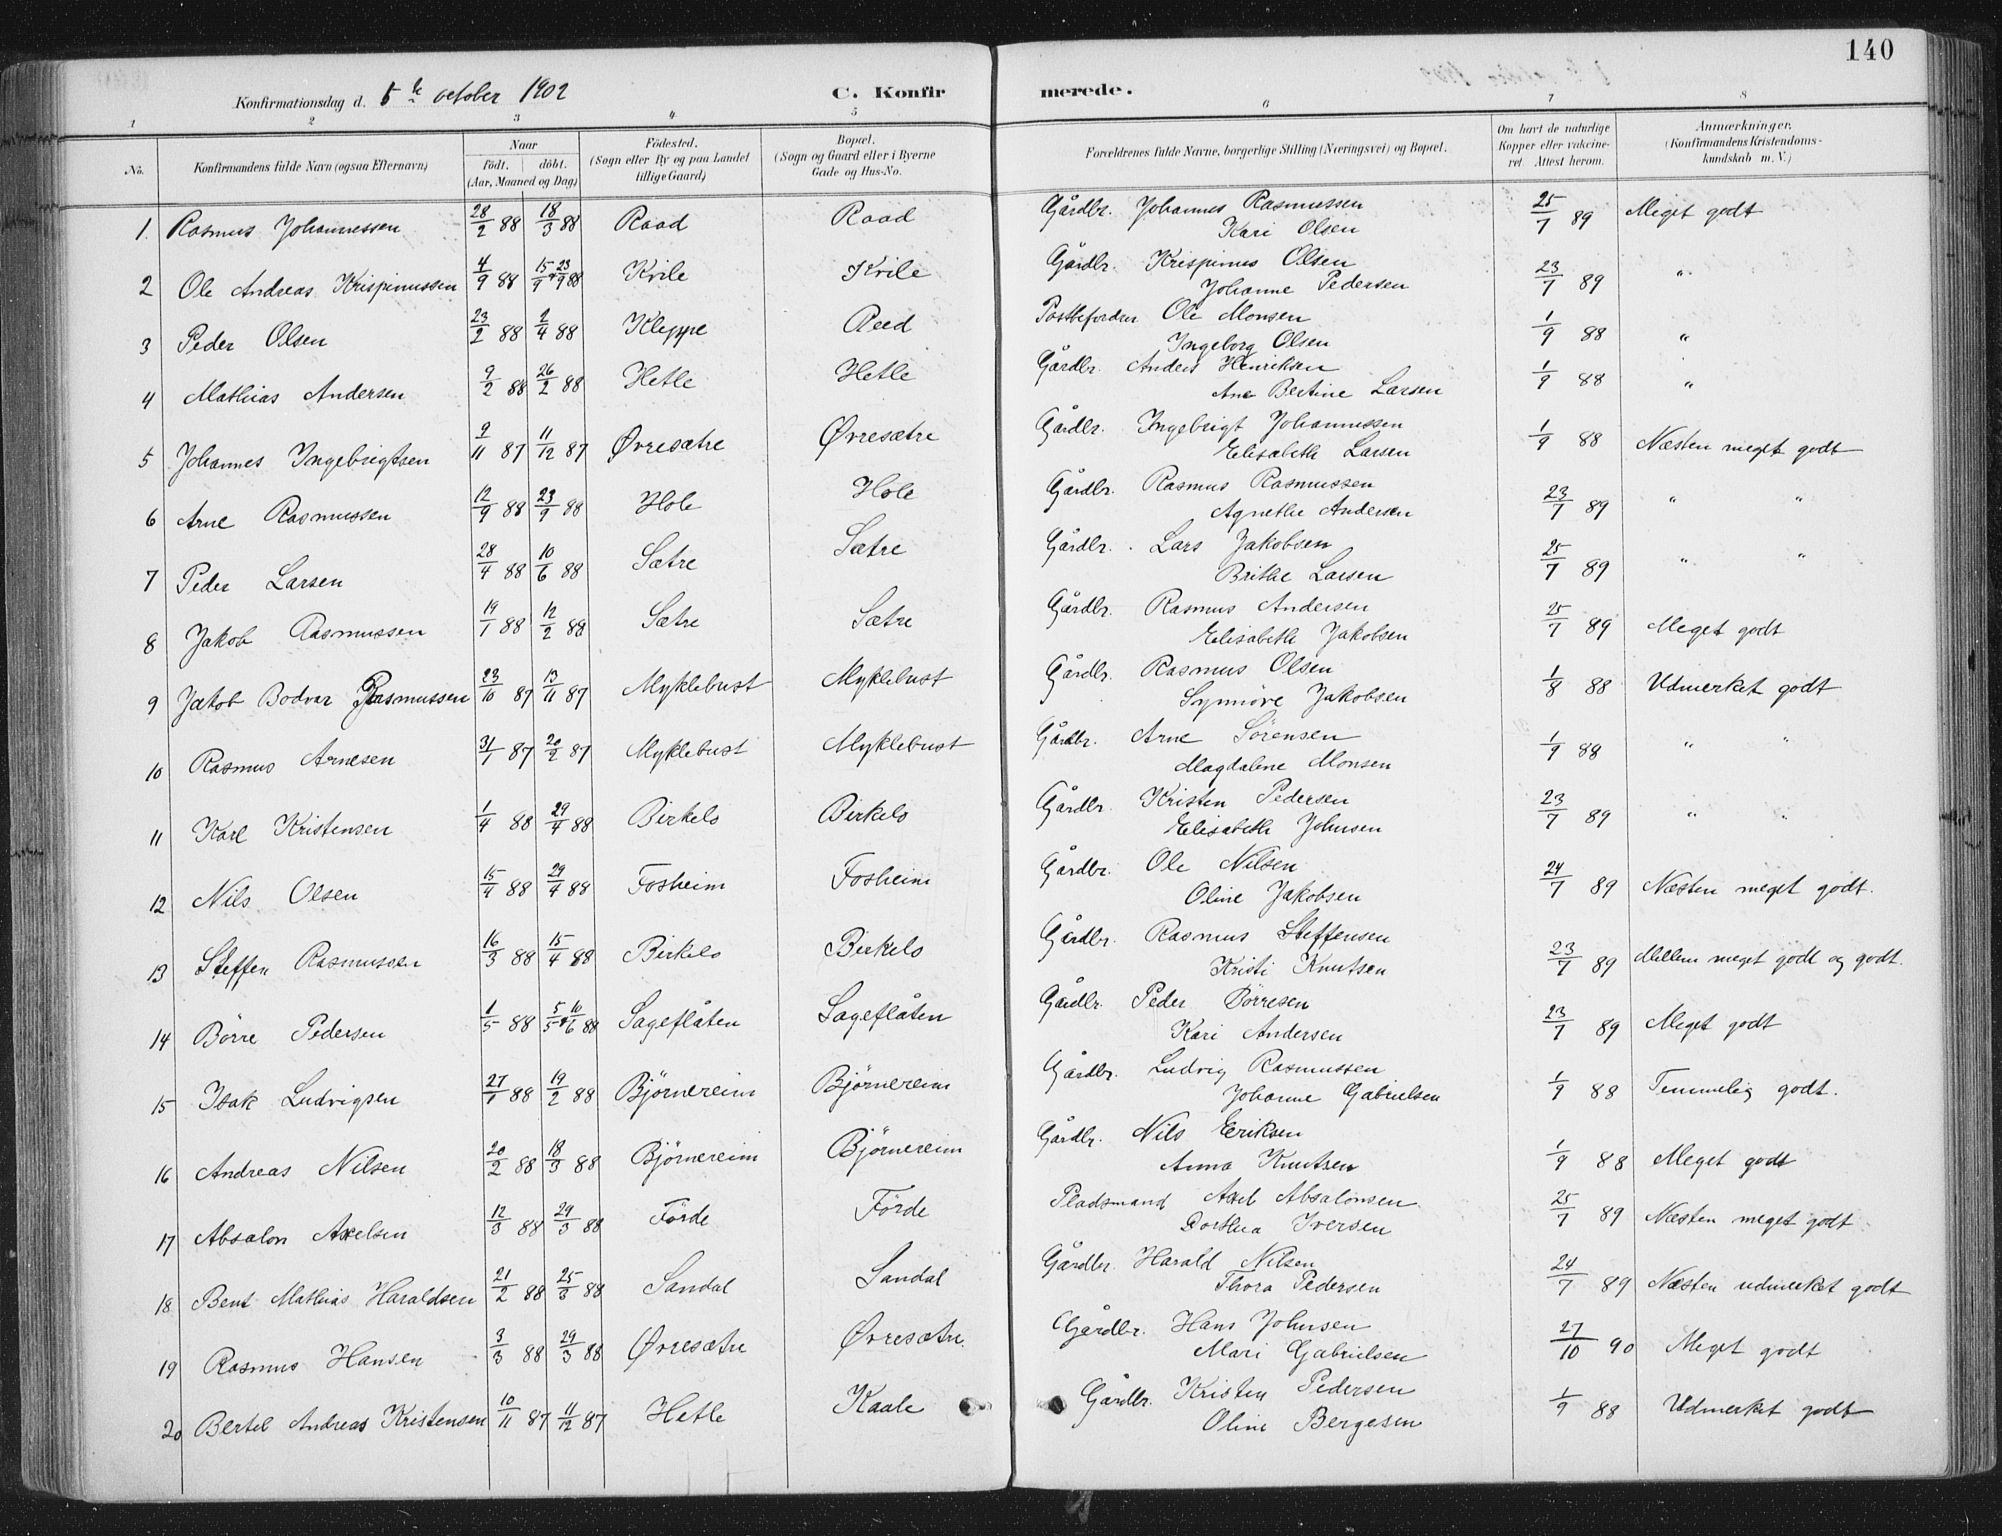 140
Konfirmationsdag d. 5te october 1902 C. Konfirmerede.
1 2 3 4 5 6 7 8
No. Konfirmandens fulde Navn (ogsaa Efternavn) Naar født. døbt. (Aar, Maaned og Dag) Födested. (Sogn eller By og paa Landet tillige Gaard) Bopæl. (Sogn og Gaard eller i Byerne Gade og Hus-No. Forældrenes fulde Navne, borgerlige Stilling (Næringsvei) og Bopæl. Om havt de naturlige Kopper eller vakcineret. Attest herom. Anmærkninger. (Konfirmandens Kristendomskundskab m. V.)
1. Rasmus Johannessen 28/2 88 18/3 88 Raad Raad Gårdbr. Johannes Rasmussen 25/7 89 Meget godt
Kari Olsen
2 Ole Andreas Krispinussen 4/9 88 15/9 + 23/9 88 Kvile Kvile Gårdbr. Krispinus Olsen 23/7 89 "
Johanne Pedersen
3 Peder Olsen 23/2 88 2/4 88 Kleppe Reed Postbefordrer Ole Monsen 1/9 88 "
Ingeborg Olsen
4 Mathias Andersen 9/2 88 26/2 88 Hetle Hetle Gårdbr. Anders Henriksen 1/9 88 "
Ane Bertine Larsen
5 Johannes Ingebrigtsen 9/11 87 11/12 87 Øvresætre Øvresætre Gårdbr. Ingebrigt Johannessen 1/9 88 Næsten meget godt
Elisabeth Larsen
6 Arne Rasmussen 12/9 88 23/9 88 Hole Hole Gårdbr. Rasmus Rasmussen 23/7 89 " "
Agnethe Andersen
7 Peder Larsen 28/4 88 10/6 88 Sætre Sætre Gårdbr. Lars Jakobsen 25/7 89 " "
Brithe Larsen
8 Jakob Rasmussen 19/1 88 12/2 88 Sætre Sætre Gårdbr. Rasmus Andersen 25/7 89 Meget godt
Elisabeth Jakobsen
9 Jakob Bodvar Rasmussen 23/10 87 13/11 87 Myklebust Myklebust Gårdbr. Rasmus Olsen 1/8 88 Udmerket godt
Synnöve Jakobsen
10 Rasmus Arnesen 31/1 87 20/2 87 Myklebust Myklebust Gårdbr. Arne Sörensen 1/9 88 " "
Magdalene Monsen
11 Karl Kristensen 1/4 88 29/4 88 Birkelo Birkelo Gårdbr. Kristen Pedersen 23/7 89 " "
Elisabeth Johnsen
12 Nils Olsen 15/4 88 29/4 88 Fosheim Fosheim Gårdbr. Ole Nilsen 24/7 89 Næsten meget godt.
Oline Jakobsen
13 Steffen Rasmussen 16/3 88 15/4 88 Birkelo Birkelo Gårdbr. Rasmus Steffensen 23/7 89 Mellem meget godt og godt.
Kristi Knutsen
14 Börre Pedersen 1/5 88 5/5 + 10/6 88 Sageflåten Sageflåten Gårdbr. Peder Börresen 23/7 89 Meget godt
Kari Andersen
15 Isak Ludvigsen 27/1 88 19/2 88 Björnereim Björnereim Gårdbr. Ludvig Rasmussen 1/9 88 Temmelig godt.
Johanne Gabrielsen
16 Andreas Nilsen 20/2 88 18/3 88 Björnereim Björnereim Gårdbr. Nils Eriksen 1/9 88 Meget godt
Anna Knutsen
17 Absalon Axelsen 12/3 88 29/3 88 Förde Förde Pladsmand Axel Absalonsen 25/7 89 Næsten meget godt
Dorthea Iversen
18 Bent Mathias Haraldsen 21/2 88 25/3 88 Sandal Sandal Gårdbr. Harald Nilsen 24/7 89 Næsten udmerket godt
Thora Pedersen
19 Rasmus Hansen 3/3 88 29/3 88 Øvresætre Øvresætre. Gårdbr. Hans Johnsen 27/10 90 Meget godt
Mari Gabrielsen
20 Bertel Andreas Kristensen 10/11 87 11/12 87 Hetle Kaale Gårdbr. Kristen Pedersen 1/9 88 Udmerket godt
Oline Bergesen